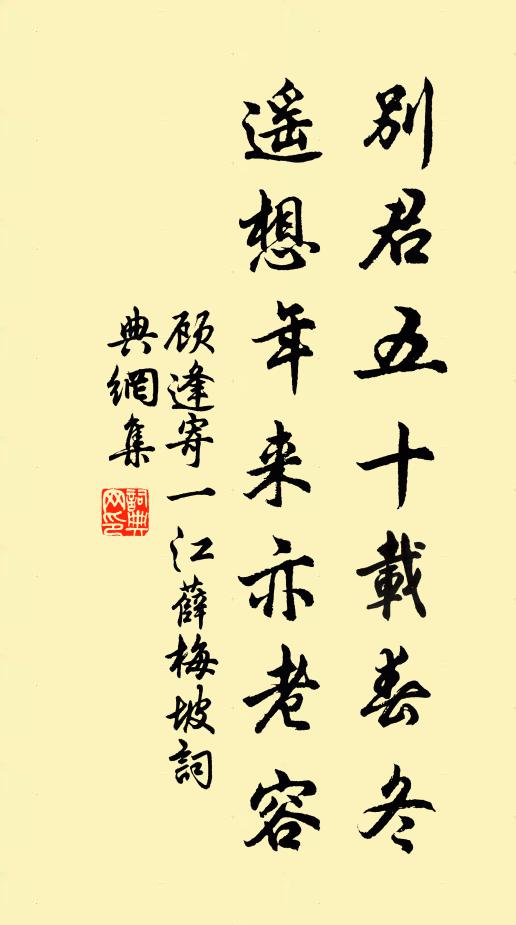 别君五十載春冬
遥想年来亦老容
顾逢寄一江薛梅坡詞
典網集
詞典网印